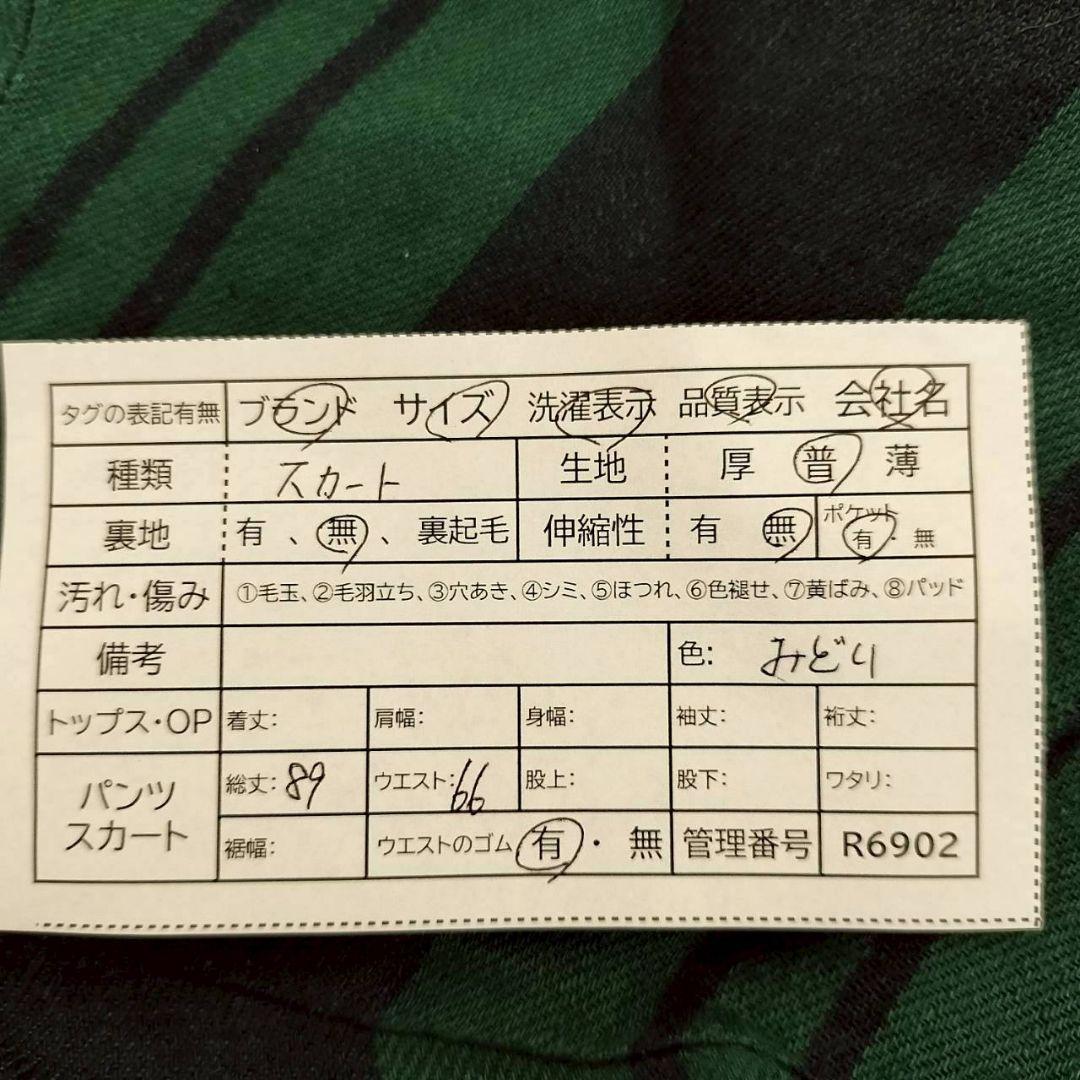 タグの表記有無 ブランド サイズ 洗濯表示 品質表示 会社名
種類 スカート 生地 厚 普 薄
裏地 有、無、裏起毛 伸縮性 有 無 ポケット 有・無
汚れ・傷み ①毛玉、②毛羽立ち、③穴あき、④シミ、⑤ほつれ、⑥色褪せ、⑦黄ばみ、⑧パッド
備考 色: みどり
トップス・OP 着丈: 肩幅: 身幅: 袖丈: 裄丈:
パンツ スカート 総丈: 89 ウエスト: 66 股上: 股下: ワタリ:
裾幅: ウエストのゴム 有・無 管理番号 R6902